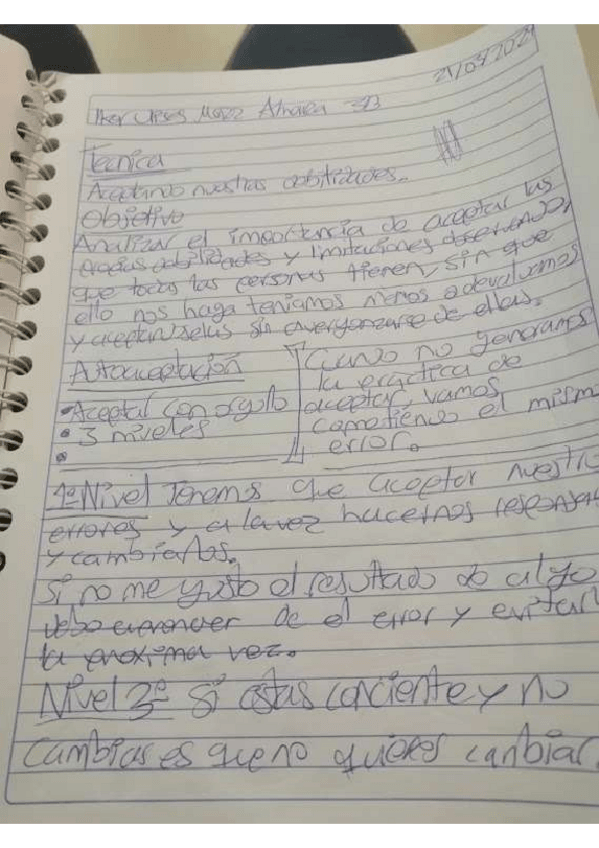 21/09/2021
Técnica
Aceptando nuestras debilidades.
Objetivo
Analizar el importancia de aceptar las
debilidades y limitaciones observando,
que todas las personas tienen, sin que
ello nos haga teniamos menos o devaluemos
y aceptanselas sin avergonzarse de ellas.
Autoaceptación
• Aceptar con orgullo
• 3 niveles
•
Cuando no generamos
la práctica de
aceptar, vamos
cometiendo el mismo
error.
1º Nivel Tenemos que aceptar nuestro
errores y a la vez hacernos responsa
y cambiarlos.
Si no me gusto el resultado de algo
debo aprender de el error y evitar
la proxima vez.
Nivel 3º Si estas conciente y no
cambias es que no quieres cambiar.